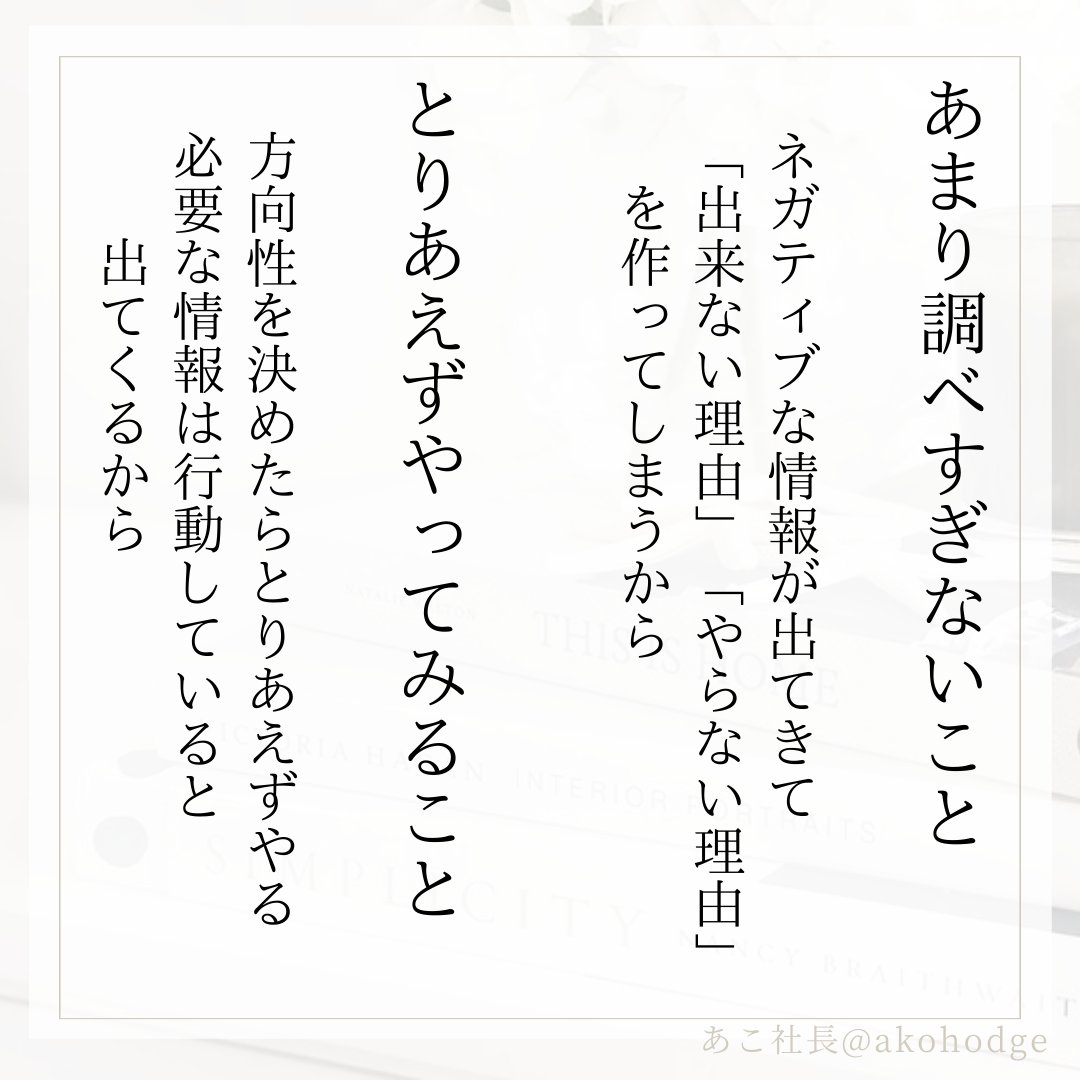 あまり調べすぎないこと
ネガティブな情報が出てきて
「出来ない理由」「やらない理由」
を作ってしまうから
とりあえずやってみること
方向性を決めたらとりあえずやる
必要な情報は行動していると
出てくるから
THIS IS HOME
INTERIOR PORTRAITS
SIMPLICITY
NANCY BRAITHWAIT
あこ社長@akohodge